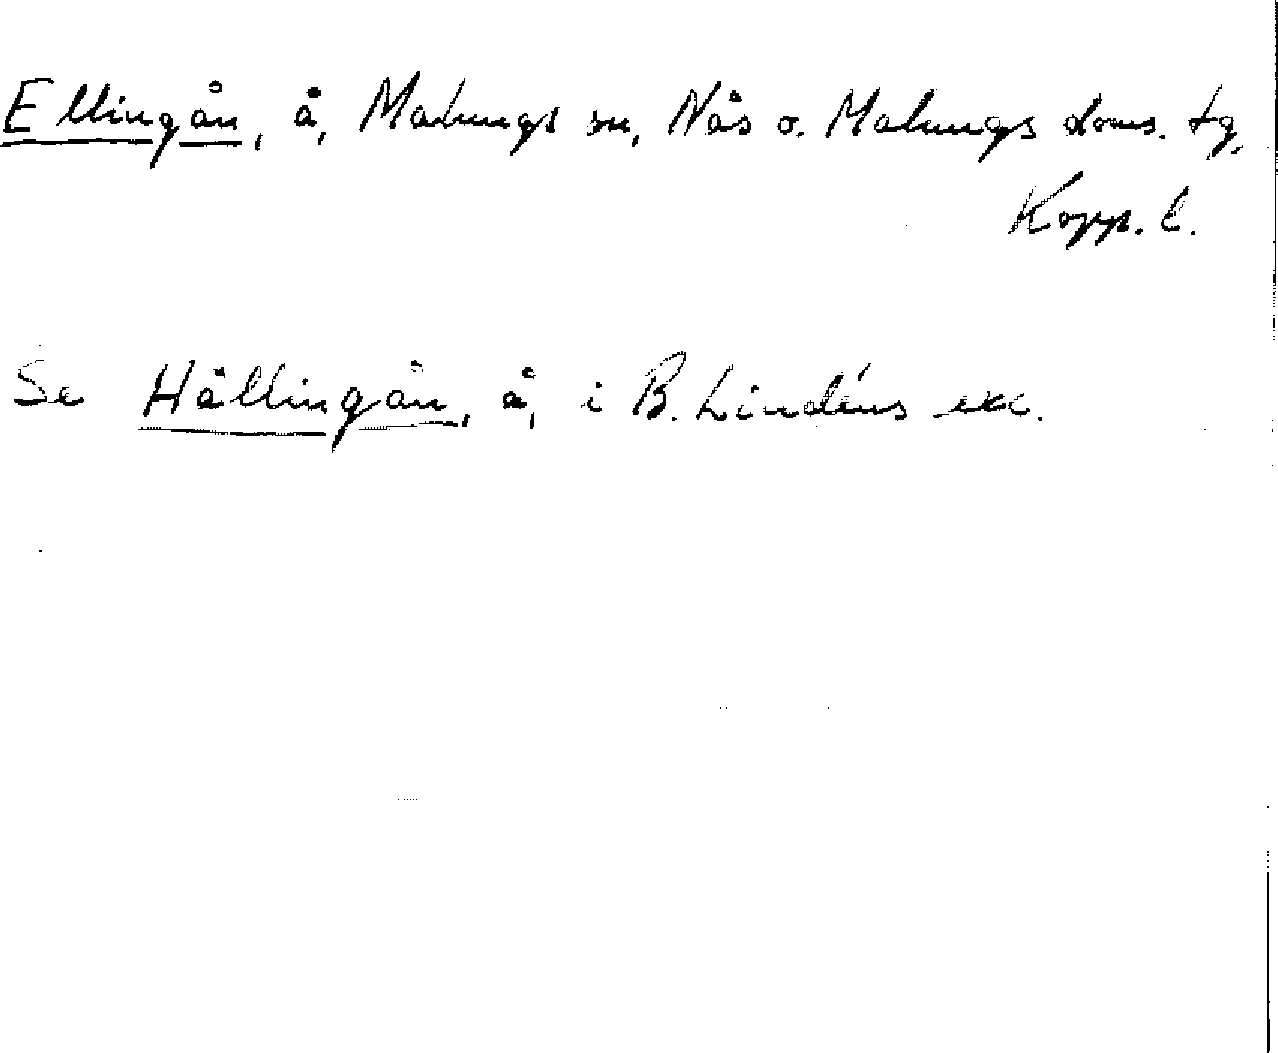 Ellingån, å, Malungs sn, Nås o. Malungs doms. tg,
Kopp. l.
Se Hållingån, å, i B. Lindéns exc.